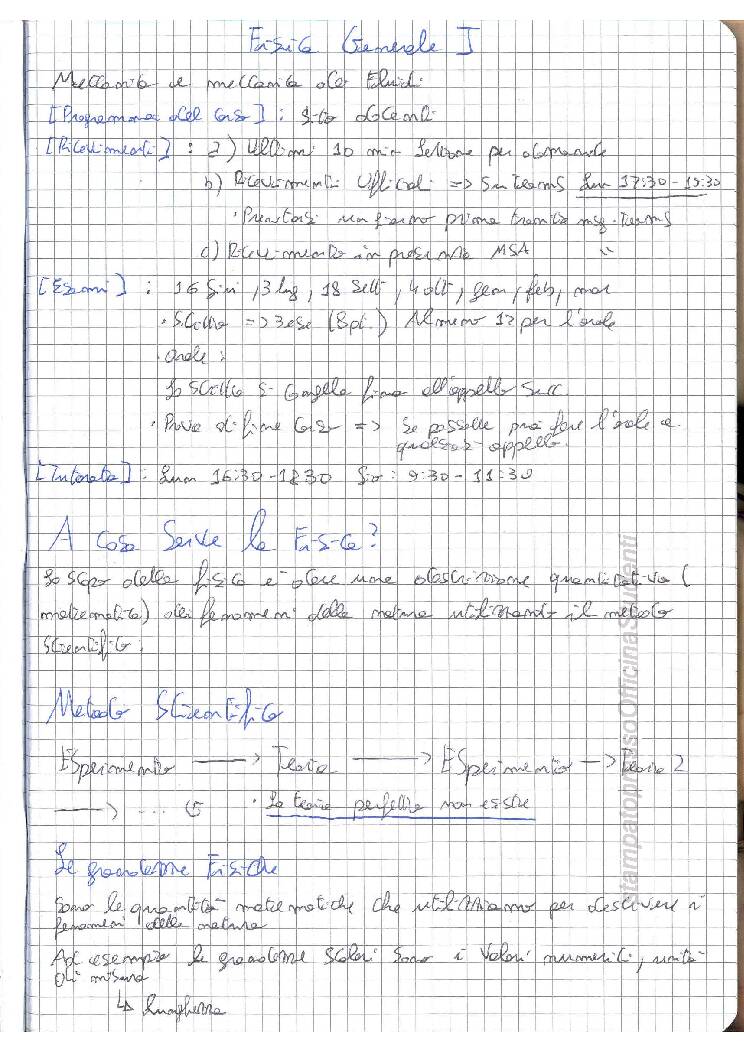 Fisica Generale I
Meccanica e meccanica dei Fluidi
[Programma del corso] : sito docenti
[Ricevimenti] : a) Ultimi 10 min lezione per domande
b) Ricevimenti Ufficiali => Su teams Lun 17:30 - 19:30
· Prenotarsi un giorno prima tramite msg. teams
c) Ricevimento in presenza MSA "
[Esami] : 16 Giu, 3 lug, 18 sett, 4 ott, gen, feb, mar
· Scritto => 3 ese (8pt.) Almeno 12 per l'orale
· Orale :
Lo scritto si congela fino all'appello succ.
· Prova di fine corso => Se passate puoi fare l'orale a
qualsiasi appello.
: Lun 16:30 - 18:30 Gio : 9:30 - 11:30
A cosa serve la Fisica?
Lo scopo della fisica è dare una descrizione quantitativa (
matematica) dei fenomeni della natura utilizzando il metodo
scientifico.
Metodo Scientifico
Esperimento → Teoria → Esperimento → Teoria 2
→ ... · La teoria perfetta non esiste
Le grandezze Fisiche
Sono le quantità matematiche che utilizziamo per descrivere i
fenomeni della natura
Ad esempio le grandezze scalari sono i valori numerici, unità
di misura
↳ lunghezza
stampatopressoOfficinaStudenti